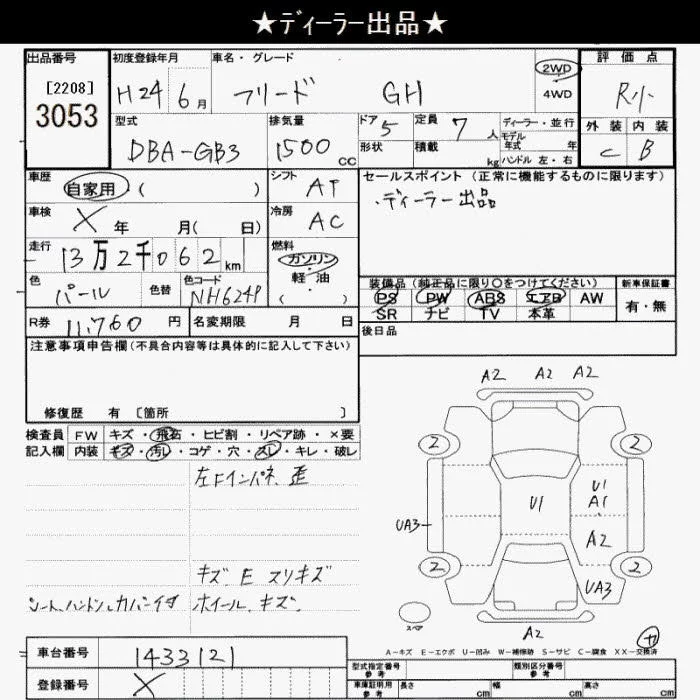 ★ディーラー出品★
出品番号
[2208]
3053
初度登録年月
H24 6月
車名・グレード
フリード GH
2WD
4WD
評価点
R小
外装 内装
C B
型式
DBA-GB3
排気量
1500 CC
ドア 5
形状
定員 7人
積載 kg
ディーラー・並行
モデル年式 年
ハンドル 左・右
車歴
自家用 ( )
シフト AT
車検
X 年 月( 日)
冷房 AC
走行
13万2千062km
燃料
ガソリン
軽・油
( )
色
パール
色替
色コード
NH624P
R券 11,760 円
名変期限 月 日
セールスポイント (正常に機能するものに限ります)
・ディーラー出品
装備品 (純正品に限り○をつけてください)
PS PW ABS エアB AW
SR ナビ TV 本革
新車保証書
有・無
後日品
注意事項申告欄(不具合内容等は具体的に記入して下さい)
修復歴 有 [箇所 ]
検査員 FW キズ・飛石・ヒビ割・リペア跡・×要
記入欄 内装 キズ・汚レ・コゲ・穴・スレ・キレ・破レ
左Fインパネ、歪
キズ、E スリキズ
シート、ハンドル カバー付
ホイール、キズ、
A2 A2 A2
2 2
U1
U1
A1
UA3
A2
2 2
UA3
スペア
A2
A-キズ E-エクボ U-凹み W-補修跡 S-サビ C-腐食 XX-交換済
車台番号 1433121
登録番号 X
型式指定番号
参考
類別区分番号
参考
車庫証明用
参考
長さ cm 幅 cm 高さ cm